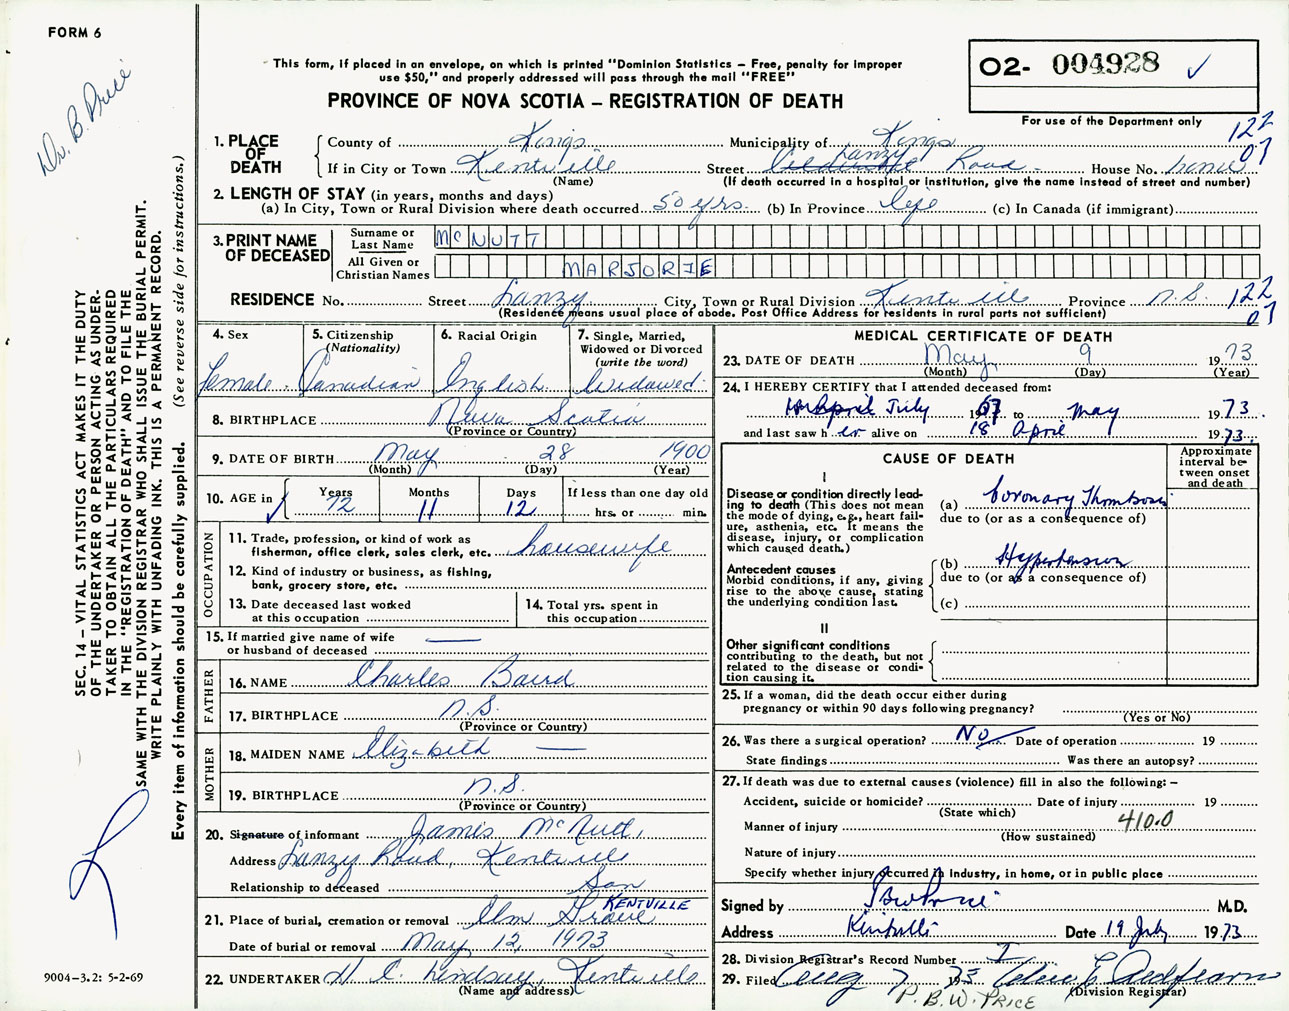 FORM 6
Dr. B. Price
This form, if placed in an envelope, on which is printed "Dominion Statistics – Free, penalty for improper
use $50," and properly addressed will pass through the mail "FREE"
PROVINCE OF NOVA SCOTIA – REGISTRATION OF DEATH
O2- 004928 ✓
For use of the Department only
122
07
1. PLACE OF DEATH
County of Kings Municipality of Kings
If in City or Town Kentville Street Lanzy Road House No. home
(Name) (If death occurred in a hospital or institution, give the name instead of street and number)
2. LENGTH OF STAY (in years, months and days)
(a) In City, Town or Rural Division where death occurred 50 yrs. (b) In Province life (c) In Canada (if immigrant)
3. PRINT NAME OF DECEASED
Surname or Last Name McNUTT
All Given or Christian Names MARJORIE
RESIDENCE No. Street Lanzy City, Town or Rural Division Kentville Province N.S. 122
(Residence means usual place of abode. Post Office Address for residents in rural parts not sufficient) 07
4. Sex
Female
5. Citizenship
(Nationality)
Canadian
6. Racial Origin
English
7. Single, Married,
Widowed or Divorced
(write the word)
Widowed
8. BIRTHPLACE Nova Scotia
(Province or Country)
9. DATE OF BIRTH May 28 1900
(Month) (Day) (Year)
10. AGE in ✓
Years Months Days If less than one day old
72 11 12 hrs. or min.
OCCUPATION
11. Trade, profession, or kind of work as
fisherman, office clerk, sales clerk, etc. housewife
12. Kind of industry or business, as fishing,
bank, grocery store, etc.
13. Date deceased last worked
at this occupation
14. Total yrs. spent in
this occupation
15. If married give name of wife
or husband of deceased —
FATHER
16. NAME Charles Baird
17. BIRTHPLACE N.S.
(Province or Country)
MOTHER
18. MAIDEN NAME Elizabeth —
19. BIRTHPLACE N.S.
(Province or Country)
20. Signature of informant James McNutt,
Address Lanzy Road, Kentville
Relationship to deceased Son
21. Place of burial, cremation or removal Elm Grove KENTVILLE
Date of burial or removal May 12, 1973
22. UNDERTAKER H. C. Lindsay, Kentville
(Name and address)
MEDICAL CERTIFICATE OF DEATH
23. DATE OF DEATH May 9 1973
(Month) (Day) (Year)
24. I HEREBY CERTIFY that I attended deceased from:
July 1967 to May 1973.
and last saw her alive on 18 April 1973.
CAUSE OF DEATH
Approximate
interval be-
tween onset
and death
I
Disease or condition directly lead-
ing to death (This does not mean
the mode of dying, e.g., heart fail-
ure, asthenia, etc. It means the
disease, injury, or complication
which caused death.)
(a) Coronary Thrombosis
due to (or as a consequence of)
Antecedent causes
Morbid conditions, if any, giving
rise to the above cause, stating
the underlying condition last.
(b) Hypertension
due to (or as a consequence of)
(c)
II
Other significant conditions
contributing to the death, but not
related to the disease or condi-
tion causing it.
25. If a woman, did the death occur either during
pregnancy or within 90 days following pregnancy?
(Yes or No)
26. Was there a surgical operation? No Date of operation 19
State findings Was there an autopsy?
27. If death was due to external causes (violence) fill in also the following: –
Accident, suicide or homicide? Date of injury 19
(State which)
Manner of injury 410.0
(How sustained)
Nature of injury
Specify whether injury occurred in industry, in home, or in public place
Signed by BW Price M.D.
Address Kentville Date 19 July 1973
28. Division Registrar's Record Number
29. Filed Aug 7 1973
(Division Registrar)
P. B. W. PRICE
SEC. 14 – VITAL STATISTICS ACT MAKES IT THE DUTY
OF THE UNDERTAKER OR PERSON ACTING AS UNDER-
TAKER TO OBTAIN ALL THE PARTICULARS REQUIRED
IN THE "REGISTRATION OF DEATH" AND TO FILE THE
SAME WITH THE DIVISION REGISTRAR WHO SHALL ISSUE THE BURIAL PERMIT.
WRITE PLAINLY WITH UNFADING INK. THIS IS A PERMANENT RECORD.
Every item of information should be carefully supplied. (See reverse side for instructions.)
9004–3.2: 5-2-69